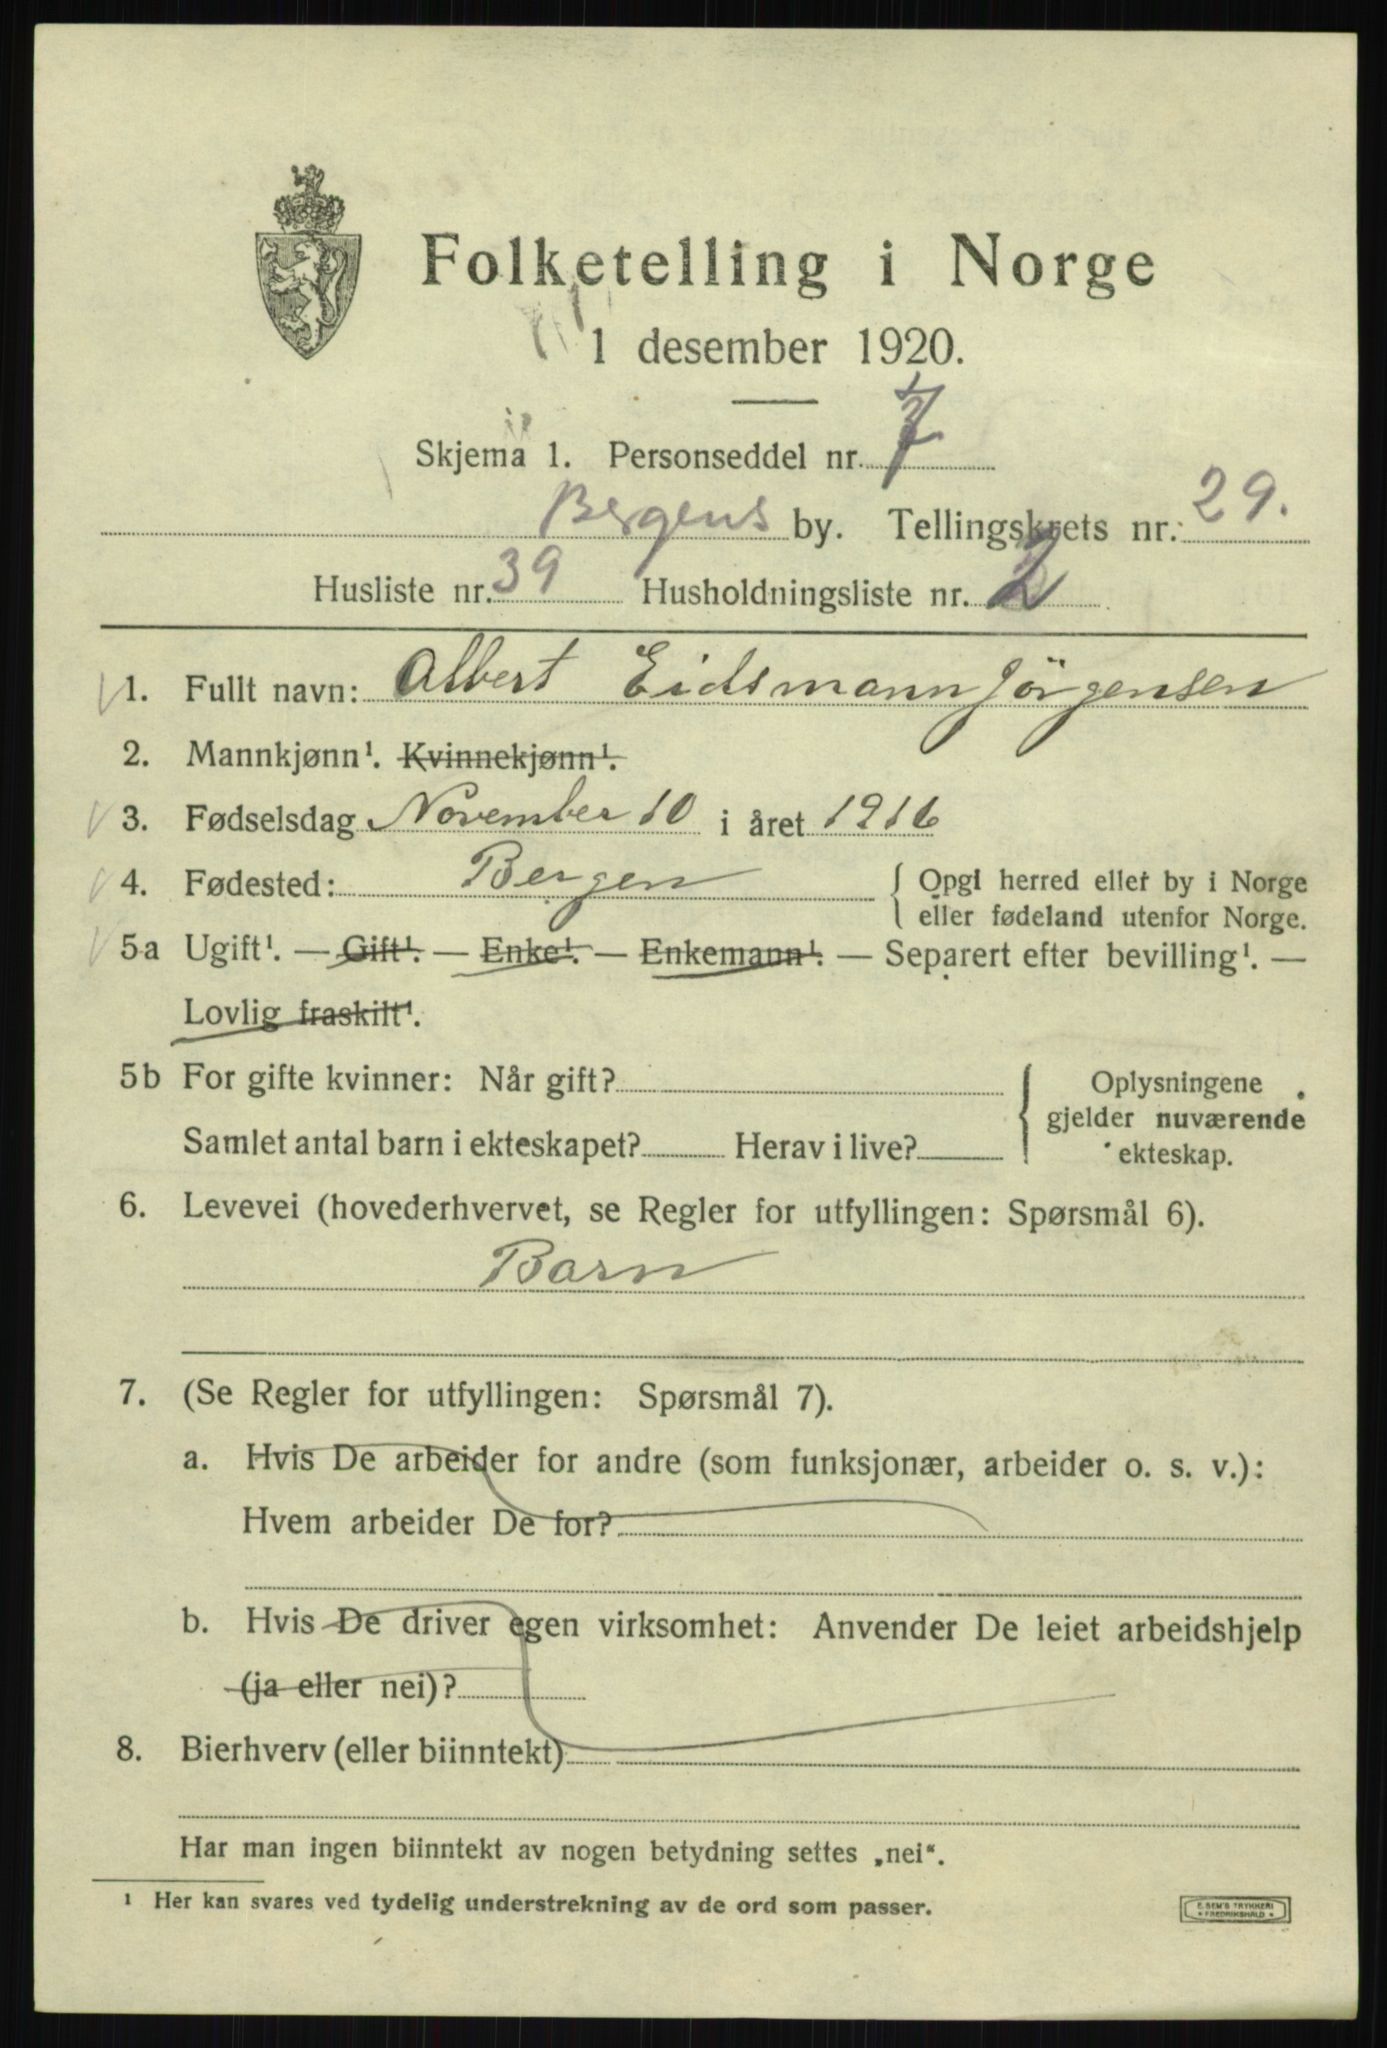 Folketelling i Norge
1 desember 1920.
Skjema 1. Personseddel nr. 7
Bergens by. Tellingskrets nr. 29.
Husliste nr. 39 Husholdningsliste nr. 2
1. Fullt navn: Albert Eidsmann Jörgensen
2. Mannkjønn¹. Kvinnekjønn¹.
3. Fødselsdag November 10 i året 1916
4. Fødested: Bergen { Opgl herred eller by i Norge
eller fødeland utenfor Norge.
5a Ugift¹. — Gift¹. — Enke¹. — Enkemann¹. — Separert efter bevilling¹. —
Lovlig fraskilt¹.
5b For gifte kvinner: Når gift? { Oplysningene
gjelder nuværende
Samlet antal barn i ekteskapet? Herav i live? ekteskap.
6. Levevei (hovederhvervet, se Regler for utfyllingen: Spørsmål 6).
Barn
7. (Se Regler for utfyllingen: Spørsmål 7).
a. Hvis De arbeider for andre (som funksjonær, arbeider o. s. v.):
Hvem arbeider De for?
b. Hvis De driver egen virksomhet: Anvender De leiet arbeidshjelp
(ja eller nei)?
8. Bierhverv (eller biinntekt)
Har man ingen biinntekt av nogen betydning settes „nei“.
¹ Her kan svares ved tydelig understrekning av de ord som passer.
E. SEM'S TRYKKERI
• FREDRIKSHALD •